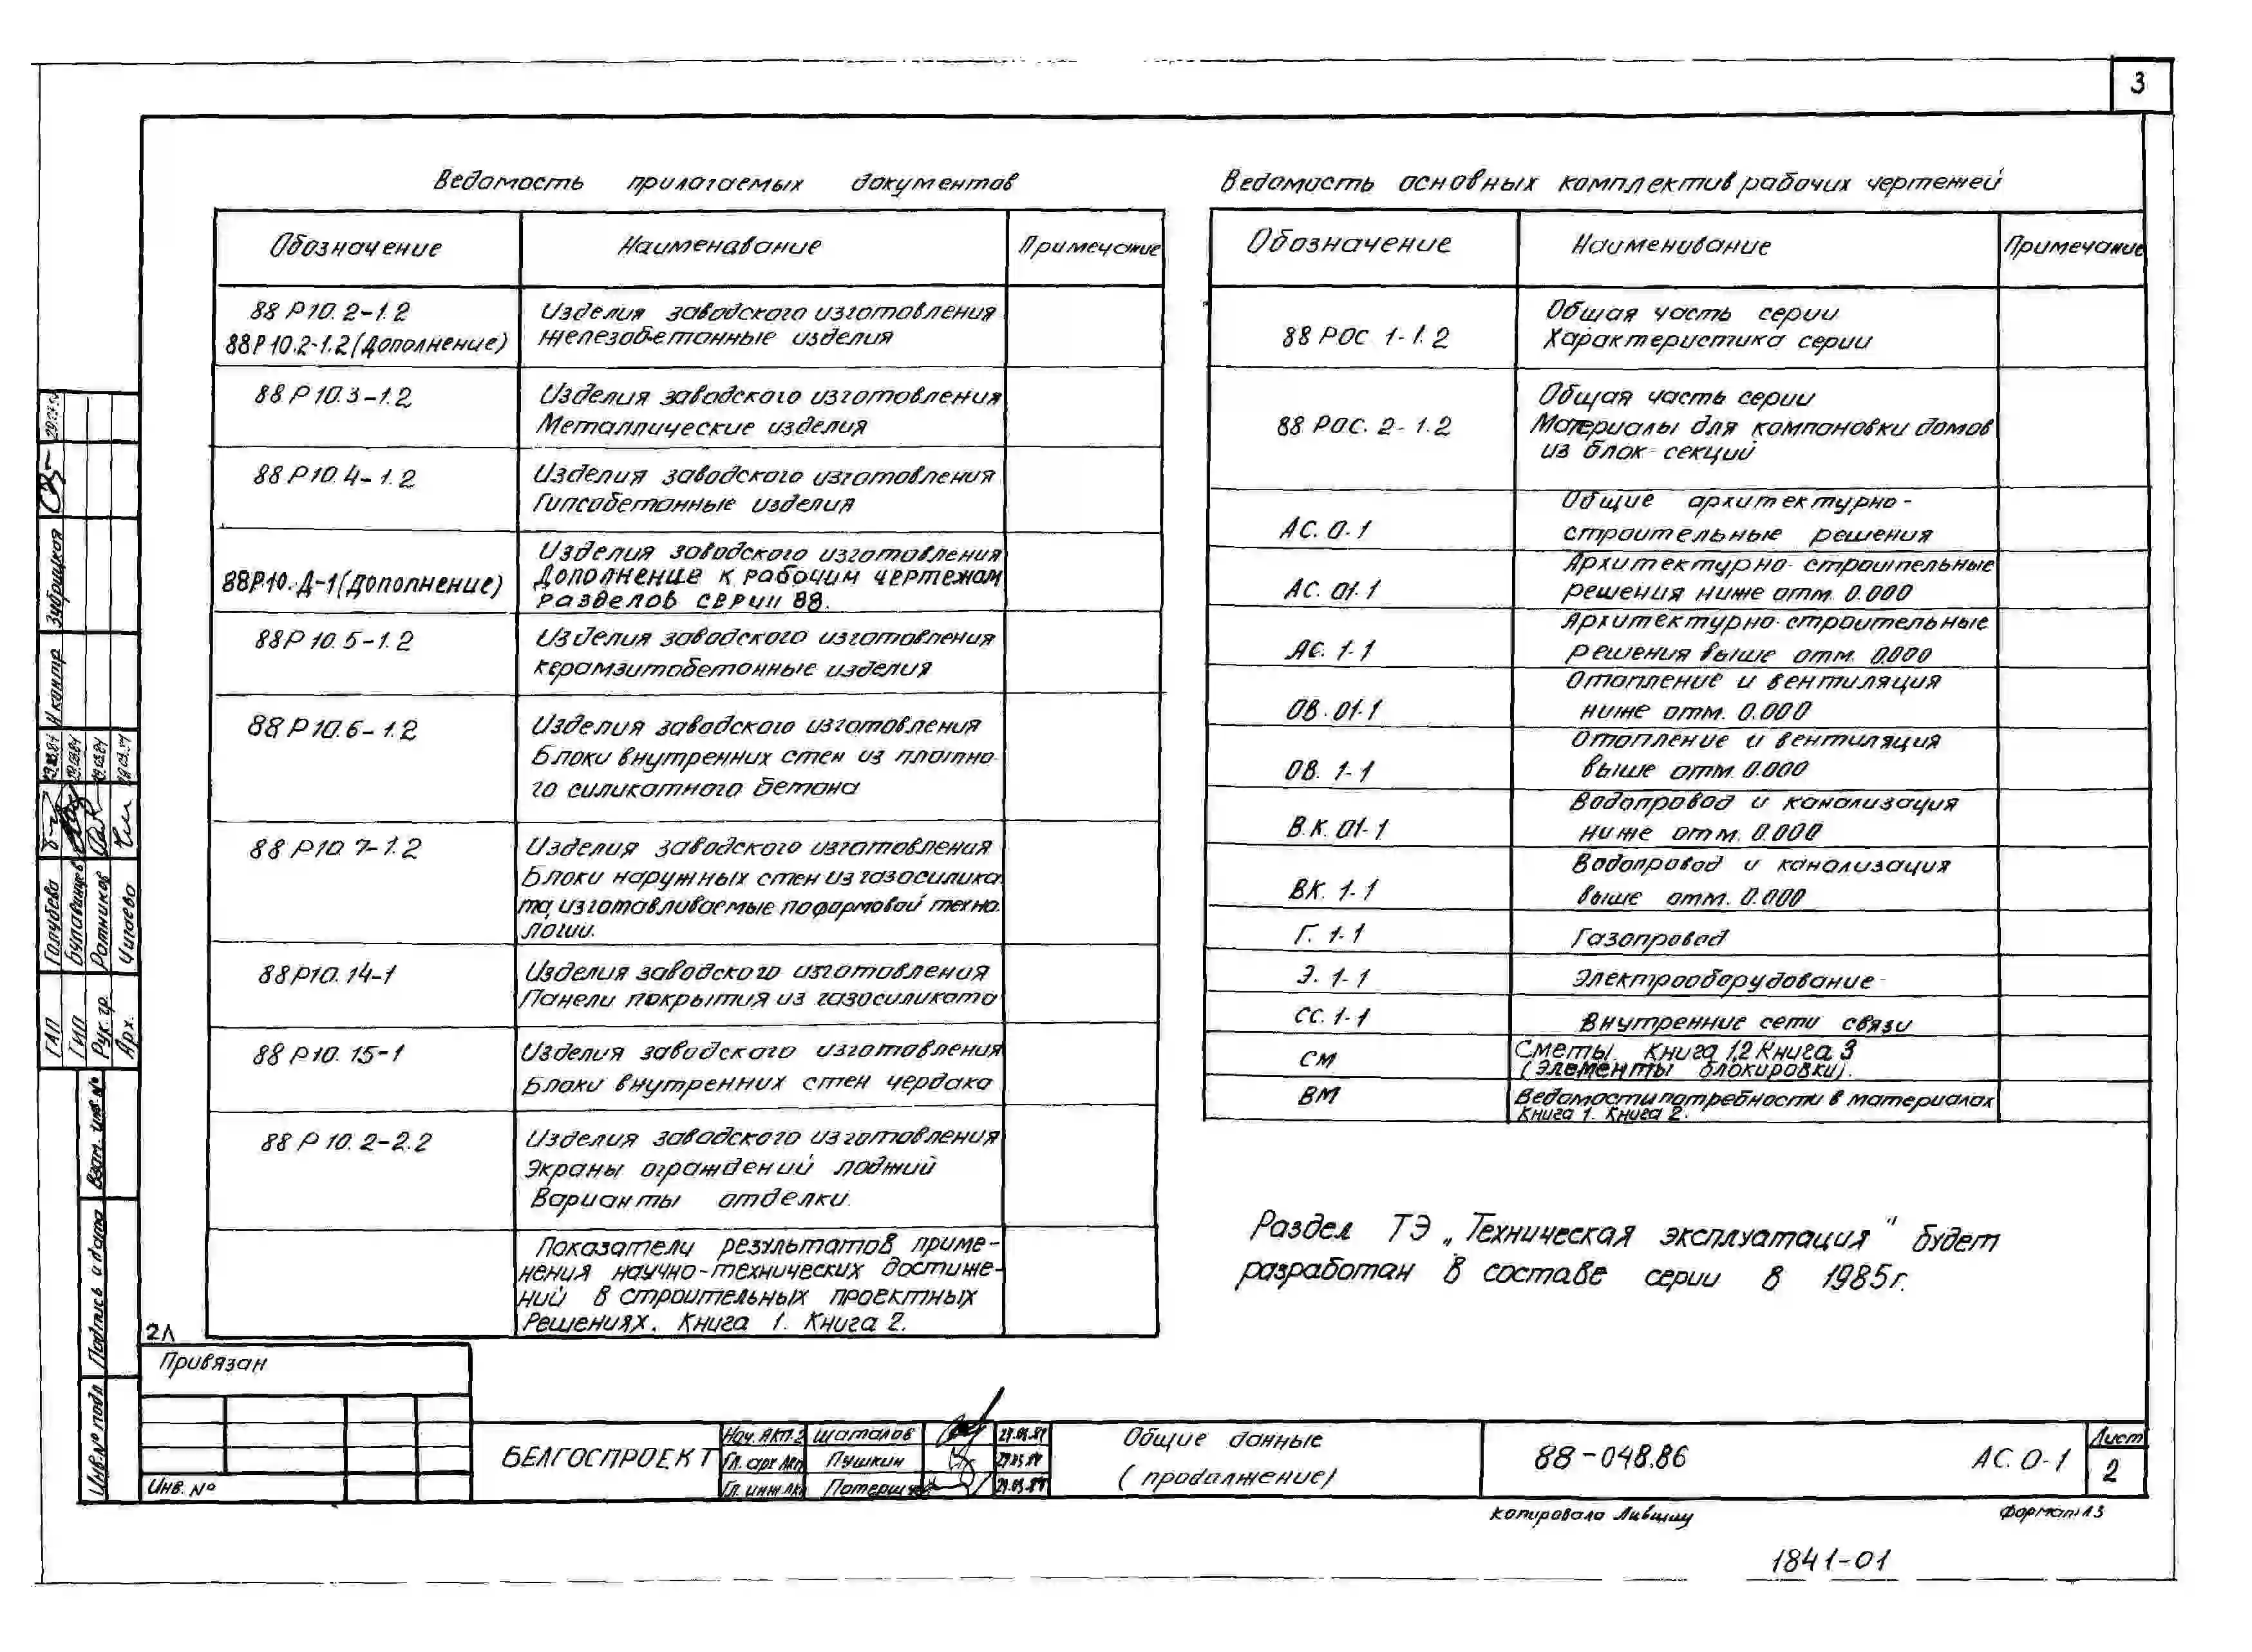 3
Ведомость прилагаемых документов
Обозначение Наименование Примечание
88 Р10.2-1.2
88Р10.2-1.2 (Дополнение)
Изделия заводского изготовления
железобетонные изделия
88 Р10.3-1.2
Изделия заводского изготовления
Металлические изделия
88 Р10.4-1.2
Изделия заводского изготовления
Гипсобетонные изделия
88Р10.Д-1 (Дополнение)
Изделия заводского изготовления
Дополнение к рабочим чертежам
разделов серии 88.
88Р 10.5-1.2
Изделия заводского изготовления
керамзитобетонные изделия
88 Р10.6-1.2
Изделия заводского изготовления
Блоки внутренних стен из плотно-
го силикатного бетона
88 Р10.7-1.2
Изделия заводского изготовления
Блоки наружных стен из газосилика-
та, изготавливаемые по формовой техно-
логии.
88Р10.14-1
Изделия заводского изготовления
Панели покрытия из газосиликата
88 Р10.15-1
Изделия заводского изготовления
Блоки внутренних стен чердака
88 Р 10.2-2.2
Изделия заводского изготовления
Экраны ограждений лоджий
Варианты отделки.
Показатели результатов приме-
нения научно-технических достиже-
ний в строительных проектных
Решениях. Книга 1. Книга 2.
Ведомость основных комплектов рабочих чертежей
Обозначение Наименование Примечание
88 РОС 1-1.2
Общая часть серии
Характеристика серии
88 РОС. 2-1.2
Общая часть серии
Материалы для компоновки домов
из блок-секций
АС. 0-1
Общие архитектурно-
строительные решения
АС. 01-1
Архитектурно-строительные
решения ниже отм. 0.000
АС. 1-1
Архитектурно-строительные
решения выше отм. 0.000
ОВ. 01-1
Отопление и вентиляция
ниже отм. 0.000
ОВ. 1-1
Отопление и вентиляция
выше отм. 0.000
В.К. 01-1
Водопровод и канализация
ниже отм. 0.000
ВК. 1-1
Водопровод и канализация
выше отм. 0.000
Г. 1-1 Газопровод
Э. 1-1 Электрооборудование
СС. 1-1 Внутренние сети связи
СМ
Сметы. Книга 1,2 Книга 3
(Элементы блокировки).
ВМ
Ведомости потребности в материалах
Книга 1. Книга 2.
Раздел ТЭ „Техническая эксплуатация" будет
разработан в составе серии в 1985г.
Н.контр Зубрицкая
ГАП Голубева
ГИП Булавинцев
Рук. гр. Ротников
Арх. Чигаева
Взам. инв. №
Подпись и дата
Инв.№ подл
2Л
Привязан
Инв. №
БЕЛГОСПРОЕКТ
Нач. АКП.2 Шаталов 29.03.84
Гл. арх. АКП Пушкин 29.03.84
Гл. инж. АКП 29.03.84
Общие данные
(продолжение)
88-048.86 АС. 0-1
Лист
2
Копировала Лившиц Формат А3
1841-01